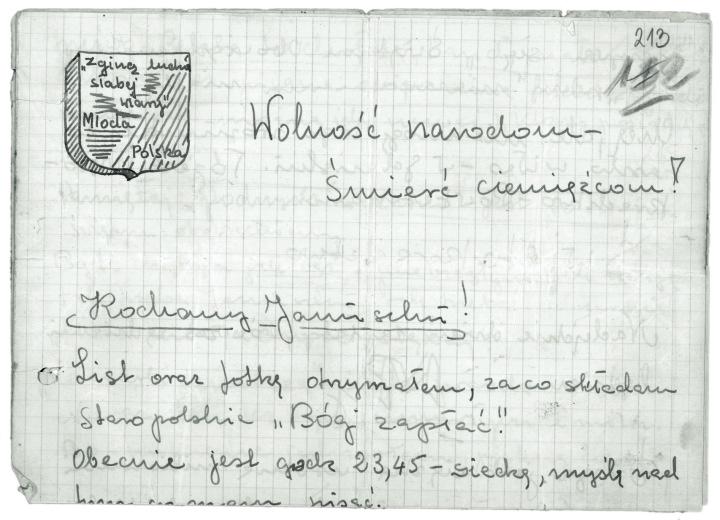 213
"Zginą ludzie
słabej
wiary"
Młoda
Polska
Wolność narodom –
Śmierć ciemięzcom!
Kochany Januszku!
List oraz fotkę otrzymałem, za co składam
staropolskie "Bóg zapłać".
Obecnie jest godz 23,45 – siedzę, myślę nad
mam pisać.